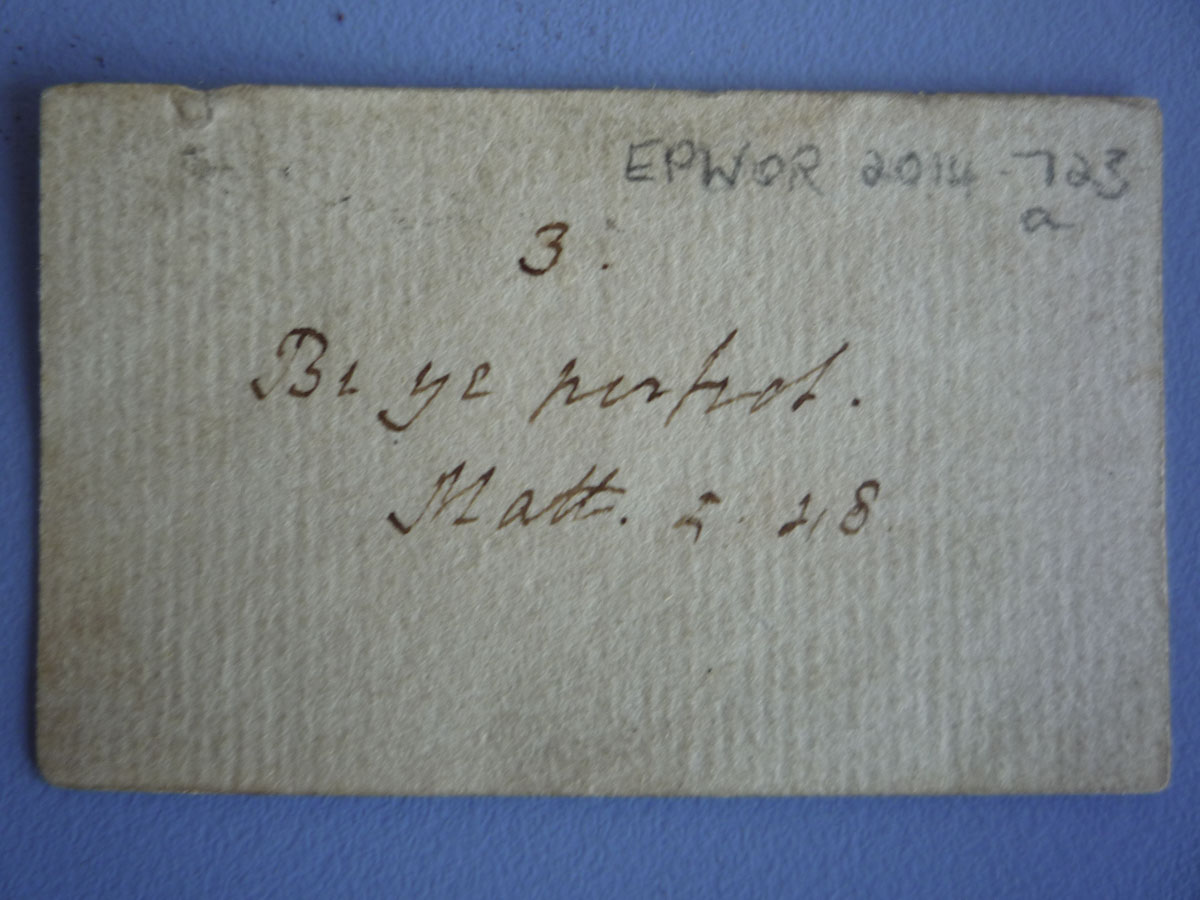 EPWOR 2014-723
a
3.
Be ye perfect.
Matt. 5. 48.